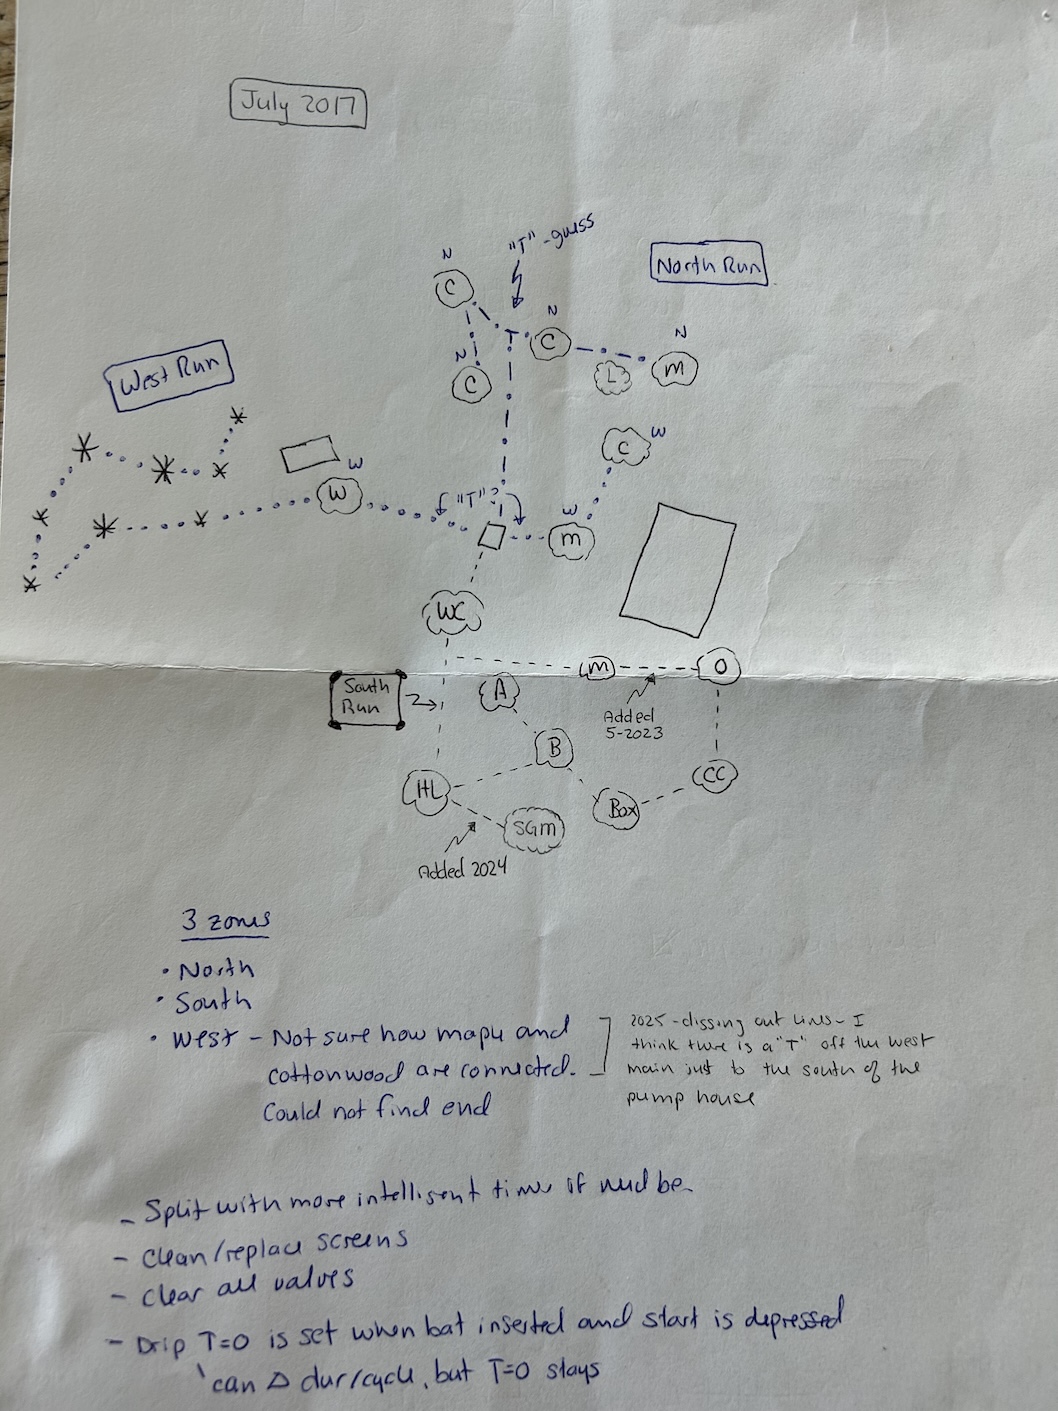 July 2017
"T" - guess
North Run
N
C
N
C
N
C
L
N
m
West Run
W
W
"T"?
C
W
W
m
WC
South
Run
A
m
O
Added
5-2023
B
HL
CC
Box
SGM
Added 2024
3 zones
• North
• South
• West - Not sure how maple and
cottonwood are connected.
Could not find end
2025 - digging out lines - I
think there is a "T" off the west
main just to the south of the
pump house
- Split with more intelligent timer if need be
- Clean/replace screens
- Clear all valves
- Drip T=0 is set when bat inserted and start is depressed
can Δ dur/cycle, but T=0 stays